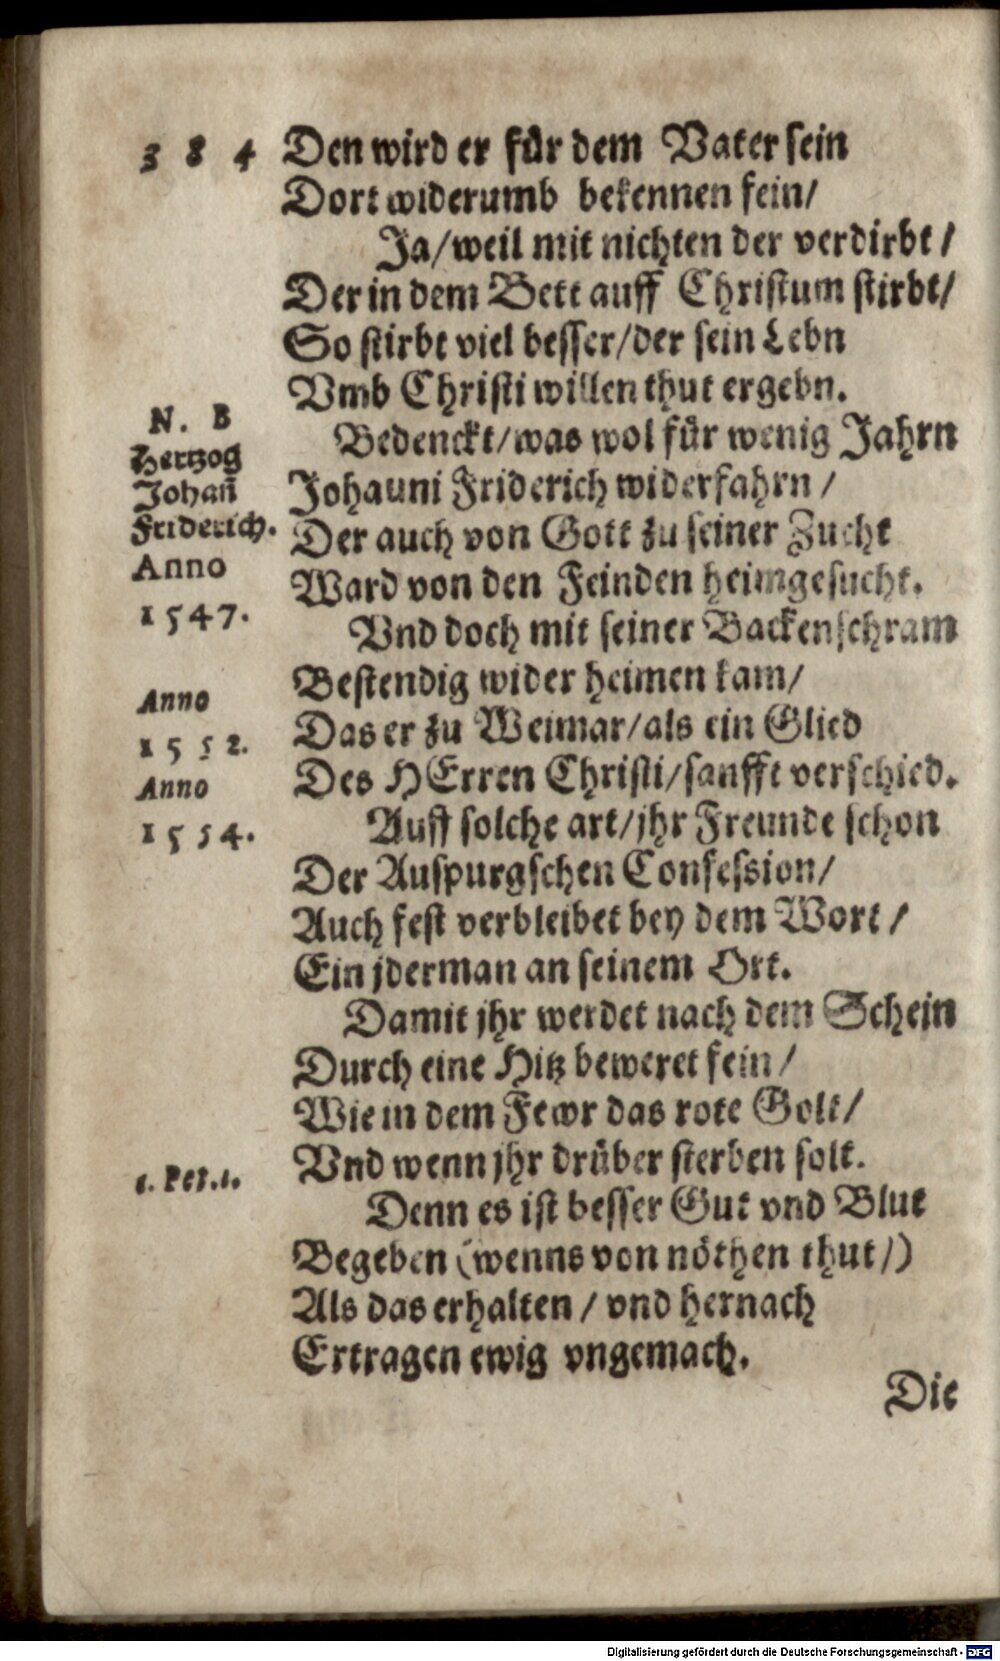 3 8 4
Den wird er für dem Vater sein
Dort widerumb bekennen fein/
Ja/weil mit nichten der verdirbt/
Der in dem Bett auff Christum stirbt/
So stirbt viel besser/der sein Lebn
Vmb Christi willen thut ergebn.
N. B
Hertzog
Johañ
Friderich.
Anno
1547.
Bedenckt/was wol für wenig Jahrn
Johauni Friderich widerfahrn/
Der auch von Gott zu seiner Zucht
Ward von den Feinden heimgesucht.
Vnd doch mit seiner Backenschram
Bestendig wider heimen kam/
Anno
1552.
Das er zu Weimar/als ein Glied
Des HErren Christi/sanfft verschied.
Anno
1554.
Auff solche art/jhr Freunde schon
Der Auspurgschen Confession/
Auch fest verbleibet bey dem Wort/
Ein jderman an seinem Ort.
Damit jhr werdet nach dem Schein
Durch eine Hitz beweret fein/
Wie in dem Fewr das rote Golt/
Vnd wenn jhr drüber sterben solt.
1. Pet. 1.
Denn es ist besser Gut vnd Blut
Begeben (wenns von nöthen thut/)
Als das erhalten/vnd hernach
Ertragen ewig vngemach.
Die
Digitalisierung gefördert durch die Deutsche Forschungsgemeinschaft - DFG